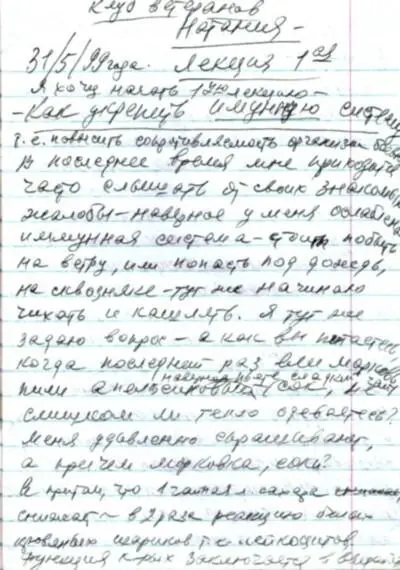 Клуб ветеранов
Натания-
31/5/99 года. Лекция 1ая
Я хочу начать 1ую лекцию-
-Как укрепить имунную систему
т.е. повысить сопротивляемость организма
В последнее время мне приходится
часто слышать от своих знакомых
жалобы-наверное у меня ослаблена
иммунная система-стоит побыть
на ветру, или попасть под дождь,
на сквозняке-тут же начинаю
чихать и кашлять. Я тут же
задаю вопрос-а как вы питаетесь,
когда последний раз ели морковь,
пили апельсиновый сок,
наверное пьёте сладкий чай
слишком ли тепло одеваетесь?
Меня удивленно спрашивают,
а причем морковка, соки?
А притом, что 1 чайная л. сахара
снижает ~ в 2 раза реакцию белых
кровяных шариков т.е. лейкоцитов,
функция к-рых заключается в